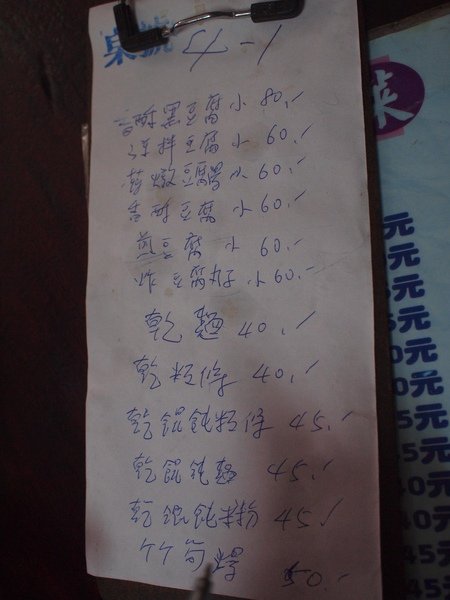 桌號 4-1
香酥黑豆腐 小 80.-
涼拌豆腐 小 60.-
燉豆腸 小 60.-
香酥豆腐 小 60.-
煎豆腐 小 60.-
炸豆腐丸子 小 60.-
乾麵 40.-
乾粄條 40.-
乾餛飩粄條 45.-
乾餛飩麵 45.-
乾餛飩米粉 45.-
竹筍 50.-
菜
元
元
元
5元
0元
0元
5元
45元
40元
40元
45元